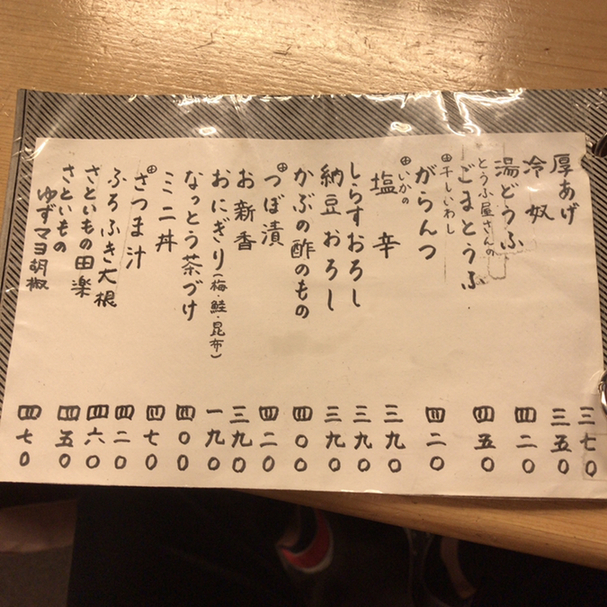 厚あげ 三七〇
冷奴 三五〇
湯どうふ 四二〇
とうふ屋さんの
ごまとうふ 四五〇
干しいわし
がらんつ 四二〇
いかの
塩辛 三九〇
しらすおろし 三九〇
納豆おろし 三九〇
かぶの酢のもの 四〇〇
つぼ漬 四二〇
お新香 三九〇
おにぎり(梅・鮭・昆布) 一九〇
なっとう茶づけ 四〇〇
ミニ丼 四七〇
さつま汁 四二〇
ふろふき大根 四六〇
さといもの田楽 四五〇
さといもの
ゆずマヨ胡椒 四七〇